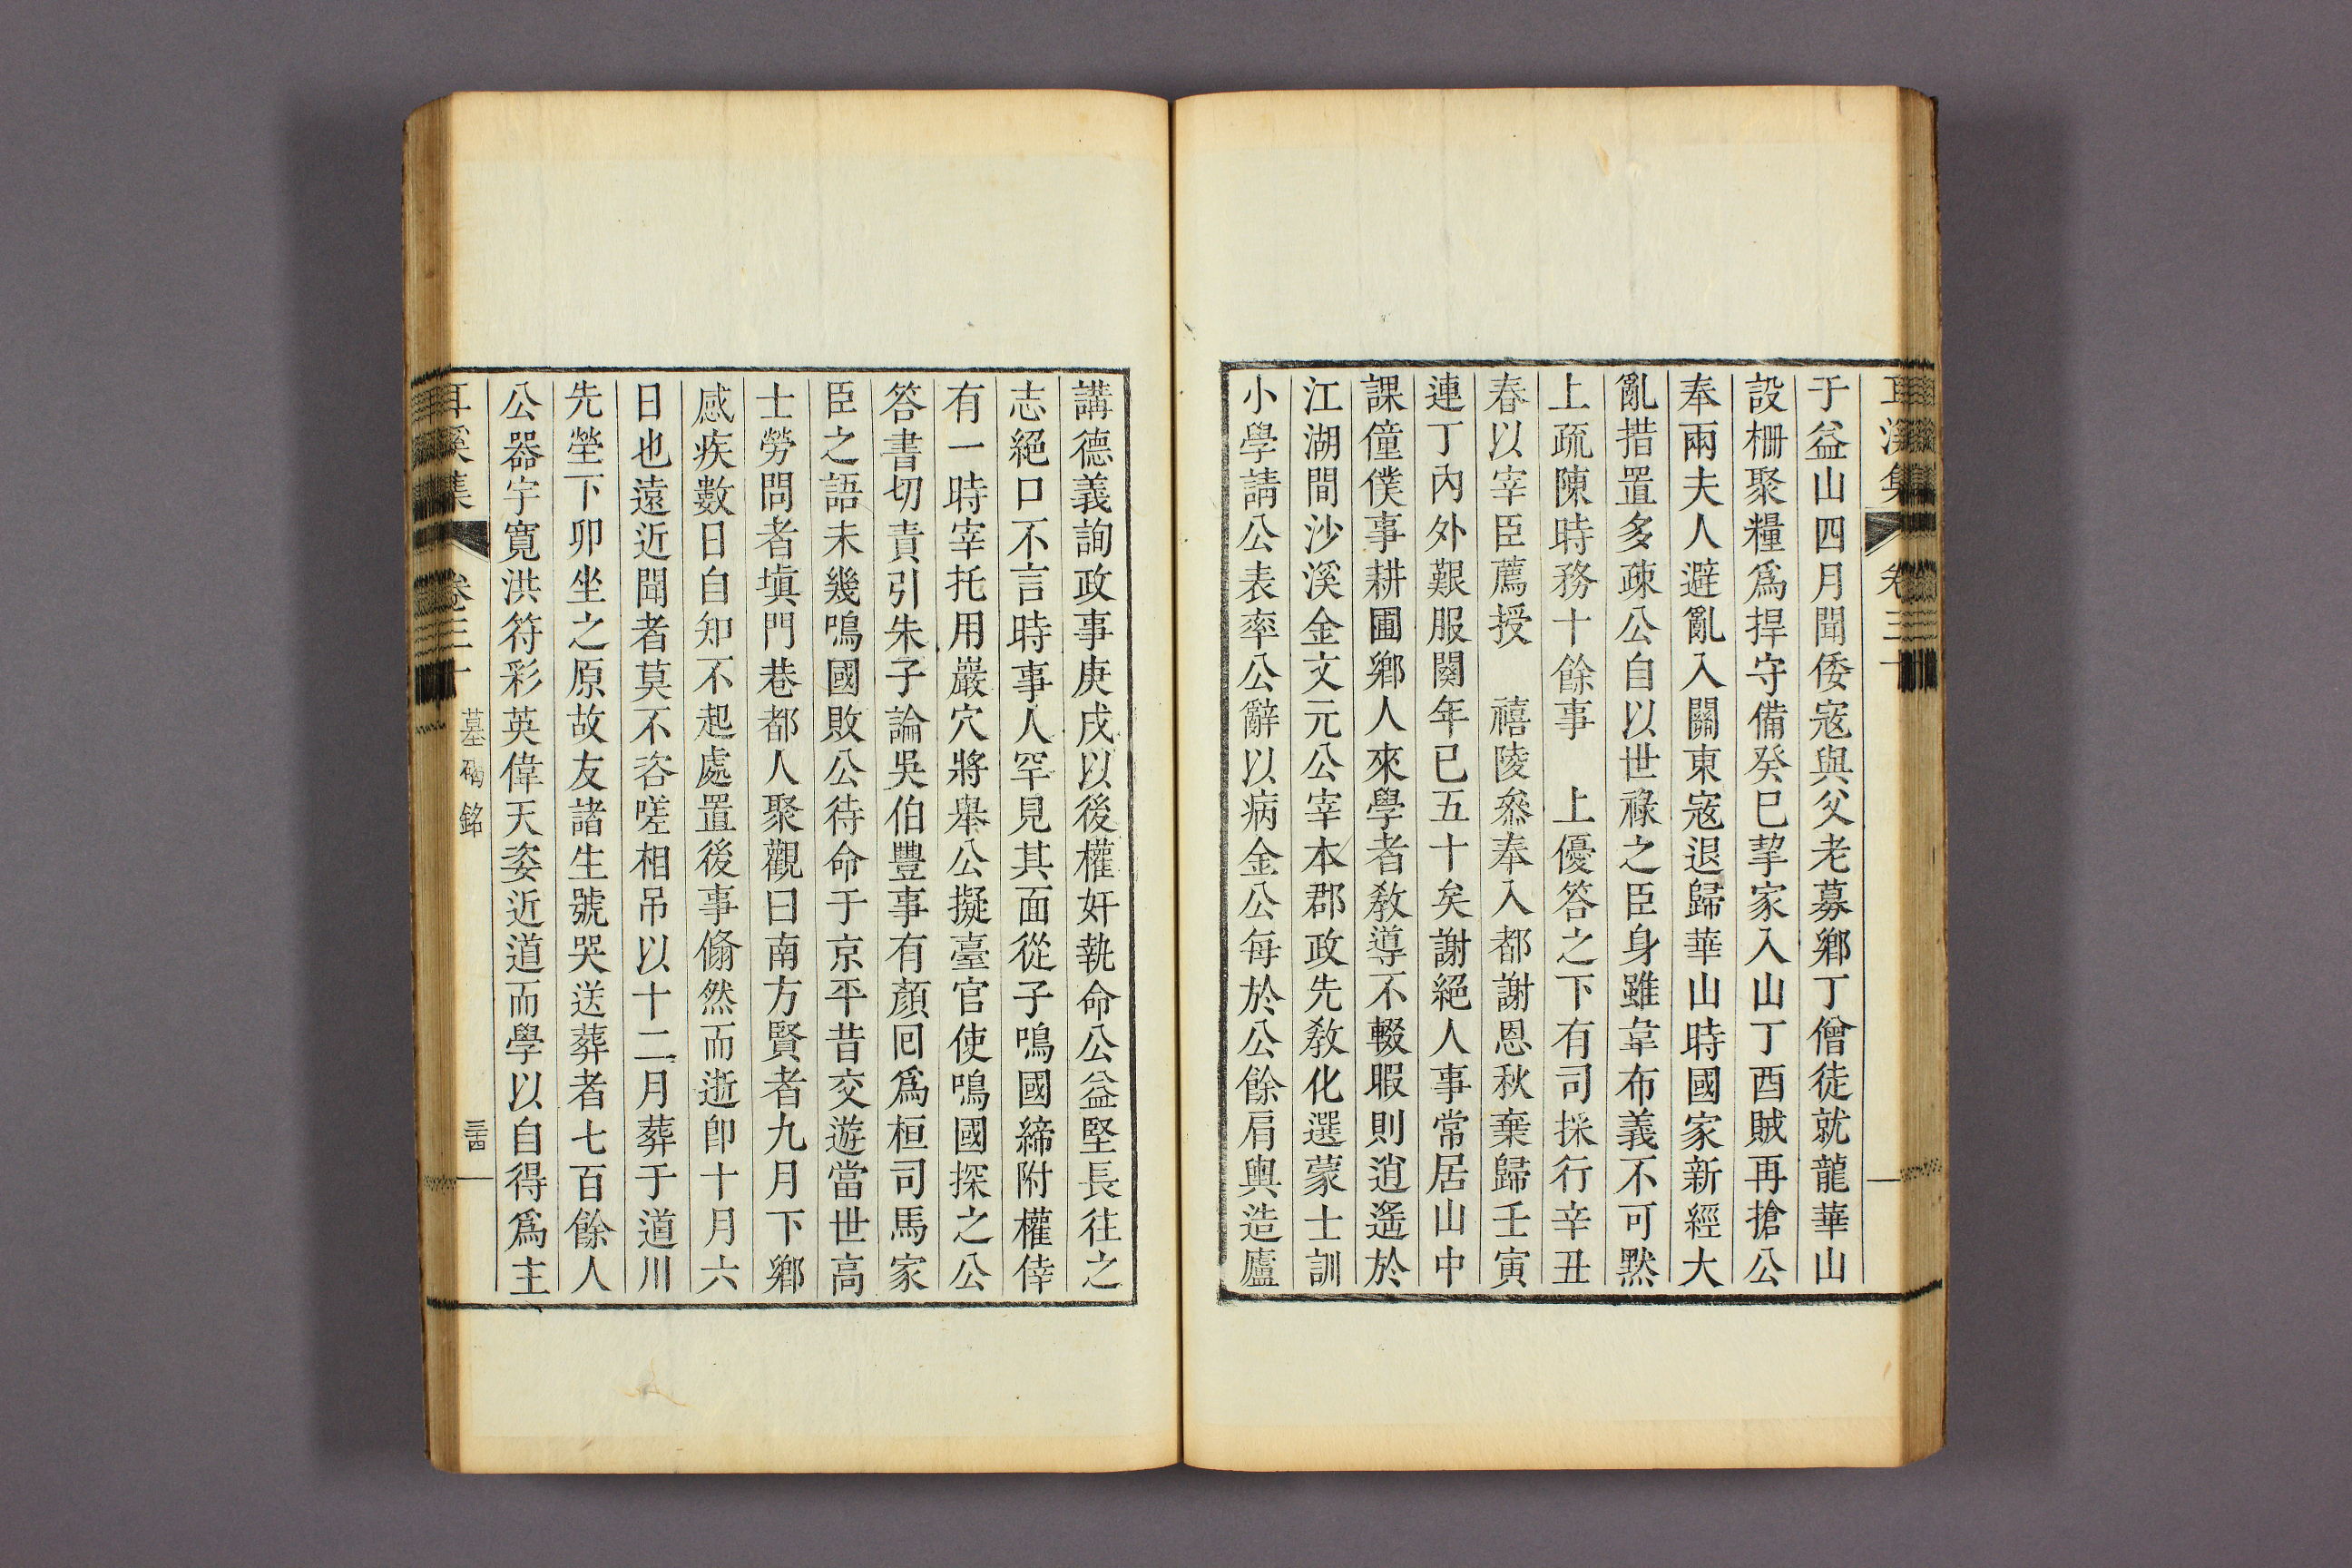 耳溪集 卷三十
于益山四月聞倭寇與父老募鄕丁僧徒就龍華山
設柵聚糧爲捍守備癸巳挈家入山丁酉賊再搶公
奉兩夫人避亂入關東寇退歸華山時國家新經大
亂措置多疎公自以世祿之臣身雖韋布義不可默
上疏陳時務十餘事　上優答之下有司採行辛丑
春以宰臣薦授　禧陵叅奉入都謝恩秋棄歸壬寅
連丁內外艱服闋年已五十矣謝絕人事常居山中
課僮僕事耕圃鄕人來學者敎導不輟暇則逍遙於
江湖間沙溪金文元公宰本郡政先敎化選蒙士訓
小學請公表率公辭以病金公每於公餘肩輿造廬
講德義詢政事庚戌以後權奸執命公益堅長往之
志絕口不言時事人罕見其面從子鳴國締附權倖
有一時宰托用巖穴將舉公擬臺官使鳴國探之公
答書切責引朱子論吳伯豐事有顏回爲桓司馬家
臣之語未幾鳴國敗公待命于京平昔交遊當世高
士勞問者塡門巷都人聚觀曰南方賢者九月下鄕
感疾數日自知不起處置後事翛然而逝卽十月六
日也遠近聞者莫不咨嗟相吊以十二月葬于道川
先塋下卯坐之原故友諸生號哭送葬者七百餘人
公器宇寬洪符彩英偉天姿近道而學以自得爲主
耳溪集 卷三十 墓碣銘 三十四